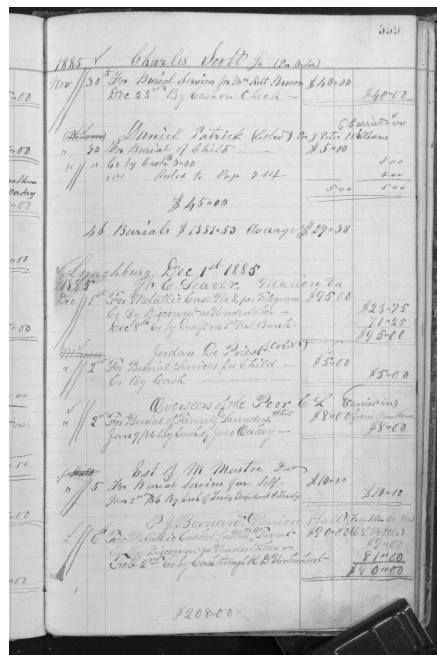 559
1885 Charles Scott Jr (Per Order)
Nov 30th For Burial Services for Mrs Robt Brown $40=00
Dec 25th By Cash on Check — $40=00
Carried in
Daniel Patrick (Cold) Per J Peter Williams
" 30 For Burial of Child — $5=00
" " Cr by Cash 3=00 3 00
Posted to Page 254 2 00
5 00 5 00
$45=00
46 Burials $1351=50 Average $29=38
Lynchburg, Dec 1st 1885
1885 W. C. Seaver. Marion Va
Dec 1st For Metallic Case No 2, per Telegram $95=00
Cr By Discount as Undertaker — $23=75
Dec 8th Cr by Draft on Nat Bank — 71=25
$95=00
Jordan De Priest (Cold)
" 2nd For Burial Services for Child — $5=00
Cr By Cash $5=00
Overseers of the Poor C L (Carried in)
" 2nd For Burial of Fannie Saunders, $8=00 from Alms House
Jan 9/86 By Cash of Jno Oakey — $8=00
Est of M Mustoe Dec
" 5 For Burial Services for Self — $10=00
Jan 2nd 86 By Cash of $10=00
P. J. Bernard, Union Hall (Franklin Co Va)
" 6th For Metallic Casket $90=00
Cr by Discount as Undertaker — $9=00
Feb 2nd Cr by Cash through 81=00
$90=00
$208=00